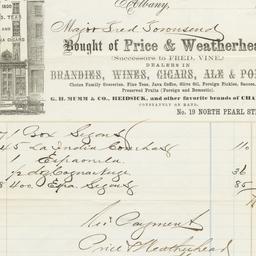 Albany,
Major Fred Townsend
Bought of Price & Weatherhe
(Successors to FRED. VINE,)
DEALERS IN
BRANDIES, WINES, CIGARS, ALE & PO
Choice Family Groceries, Fine Teas, Java Coffee, Olive Oil, Foreign Pickles, Sauces,
Preserved Fruits (Foreign and Domestic).
G. H. MUMM & CO., HEIDSICK, and other favorite brands of CHA
CONSTANTLY ON HAND.
No. 19 NORTH PEARL ST
1 Box Segars
La India 110
Española
1/2 36
400 Segars 85
Rec Payment
Price & Weatherhead